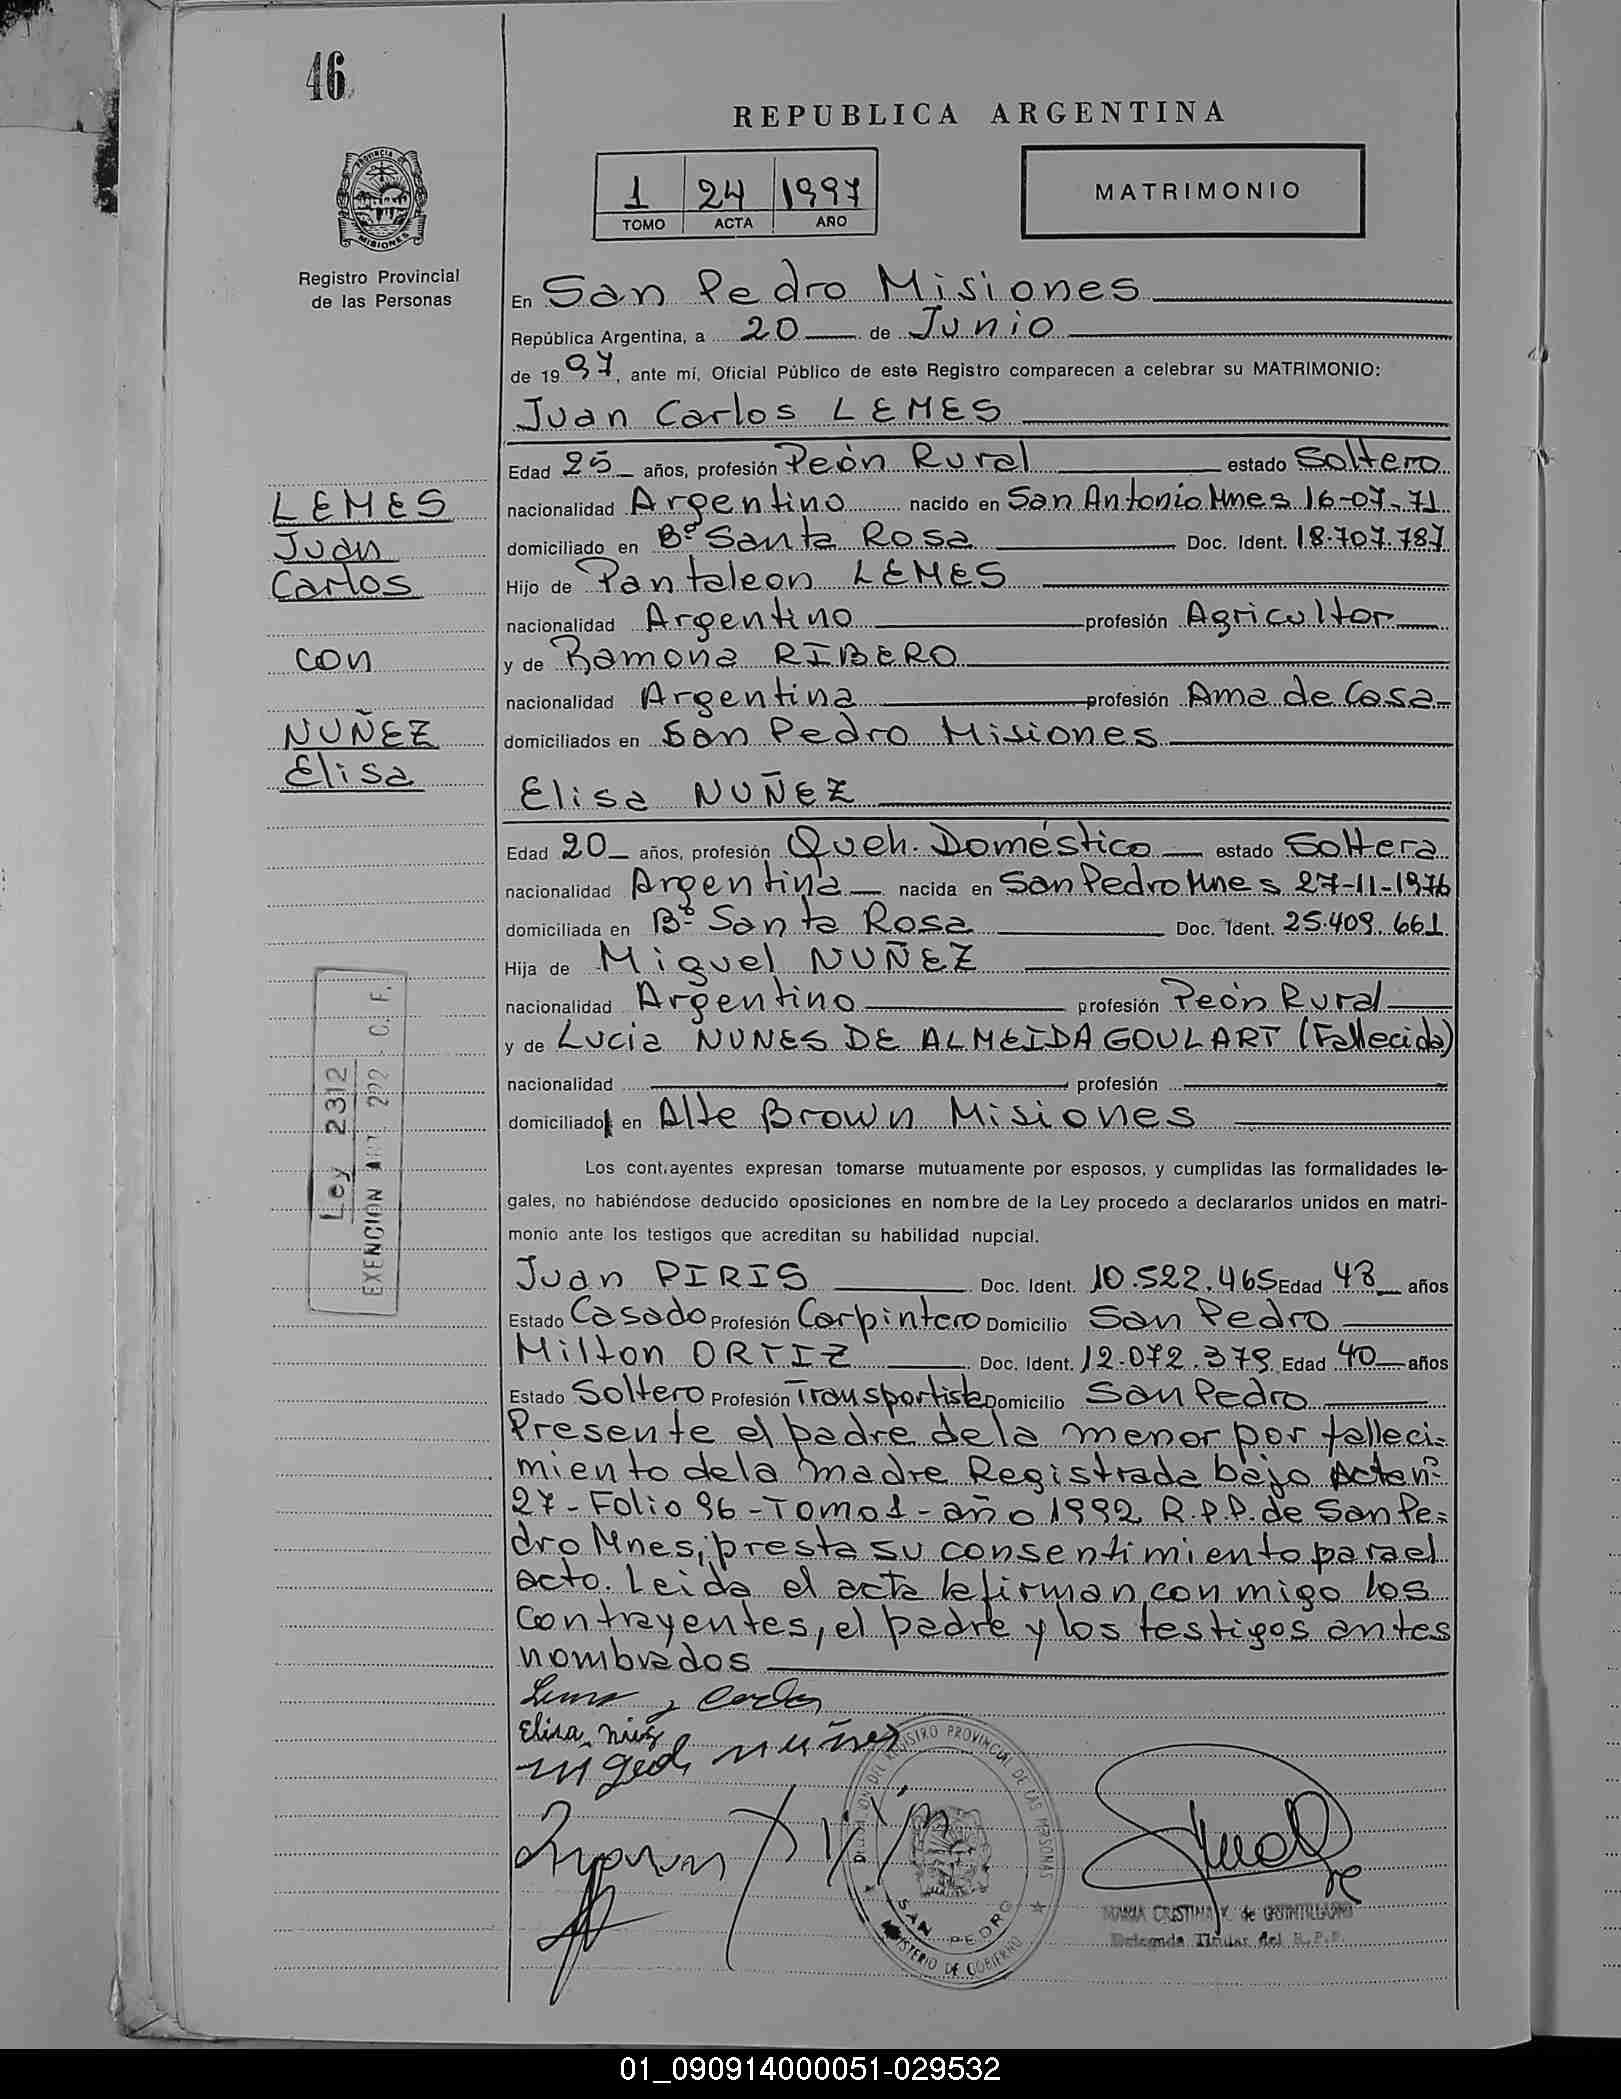 46
REPUBLICA ARGENTINA
1 24 1997
TOMO ACTA AÑO
MATRIMONIO
PROVINCIA DE
MISIONES
Registro Provincial
de las Personas
En San Pedro Misiones
República Argentina, a 20 de Junio
de 1997, ante mí, Oficial Público de este Registro comparecen a celebrar su MATRIMONIO:
Juan Carlos LEMES
Edad 25 años, profesión Peón Rural estado Soltero
nacionalidad Argentino nacido en San Antonio Mnes 16-07-71
domiciliado en Bº Santa Rosa Doc. Ident. 18.707.787
Hijo de Pantaleon LEMES
nacionalidad Argentino profesión Agricultor
y de Ramona RIBERO
nacionalidad Argentina profesión Ama de Casa
domiciliados en San Pedro Misiones
LEMES
Juan
Carlos
con
NUÑEZ
Elisa
Elisa NUÑEZ
Edad 20 años, profesión Queh. Doméstico estado Soltera
nacionalidad Argentina nacida en San Pedro Mnes 27-11-1976
domiciliada en Bº Santa Rosa Doc. Ident. 25.409.661
Hija de Miguel NUÑEZ
nacionalidad Argentino profesión Peón Rural
y de Lucia NUNES DE ALMEIDA GOULART (Fallecida)
nacionalidad profesión
domiciliado en Alte Brown Misiones
Ley 2312
EXENCION ART. 292 - C. F.
Los contrayentes expresan tomarse mutuamente por esposos, y cumplidas las formalidades le-
gales, no habiéndose deducido oposiciones en nombre de la Ley procedo a declararlos unidos en matri-
monio ante los testigos que acreditan su habilidad nupcial.
Juan PIRIS Doc. Ident. 10.522.465 Edad 43 años
Estado Casado Profesión Carpintero Domicilio San Pedro
Milton ORTIZ Doc. Ident. 12.072.379 Edad 40 años
Estado Soltero Profesión Transportista Domicilio San Pedro
Presente el padre de la menor por falleci-
miento de la madre Registrada bajo Acta nº
27-Folio 96-Tomo 1-año 1992 R.P.P. de San Pe-
dro Mnes; presta su consentimiento para el
acto. Leida el acta la firman con migo los
contrayentes, el padre y los testigos antes
nombrados
Elisa
nuñez
REGISTRO PROVINCIAL DE LAS PERSONAS
SAN PEDRO
MINISTERIO DE GOBIERNO
MARIA CRISTINA de QUINTILLANO
Delegada Titular del R.P.P.
01_090914000051-029532